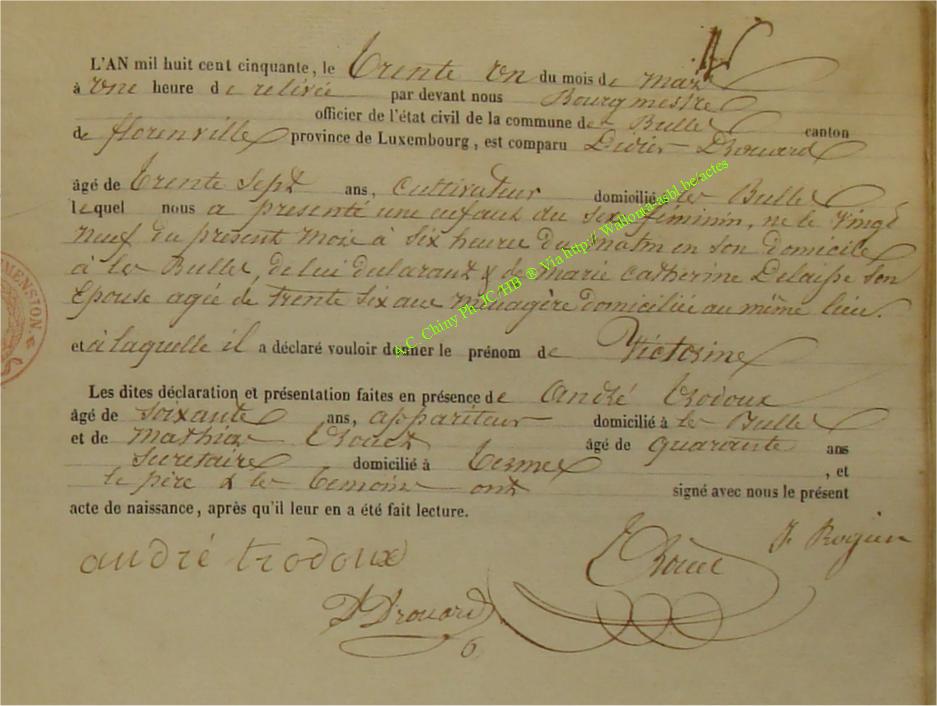 L'AN mil huit cent cinquante, le Trente un du mois de mars
à une heure de relevée par devant nous Bourgmestre
officier de l'état civil de la commune de Bulle canton
de florenville province de Luxembourg, est comparu Didier Drouard
âgé de Trente Sept ans, Cultivateur domicilié Bulles
lequel nous a présenté une enfant du sexe féminin, né le vingt
neuf du présent mois à six heure du matin en son domicile
à les Bulles, de lui déclarant & de Marie Catherine son
Epouse agée de trente six ans ménagère domiciliée au même lieu.
et à laquelle il a déclaré vouloir donner le prénom de Victorine
Les dites déclaration et présentation faites en présence de André Trodoux
âgé de Soixante ans, appariteur domicilié à les Bulles
et de Mathieu âgé de quarante ans
Secretaire domicilié à Termes , et
le père & les temoins ont signé avec nous le présent
acte de naissance, après qu'il leur en a été fait lecture.
andré trodoux
D Drouard
A.C. Chiny Ph. JC/HB ® Via http:// Wallonia-asbl.be/actes
MENSION.